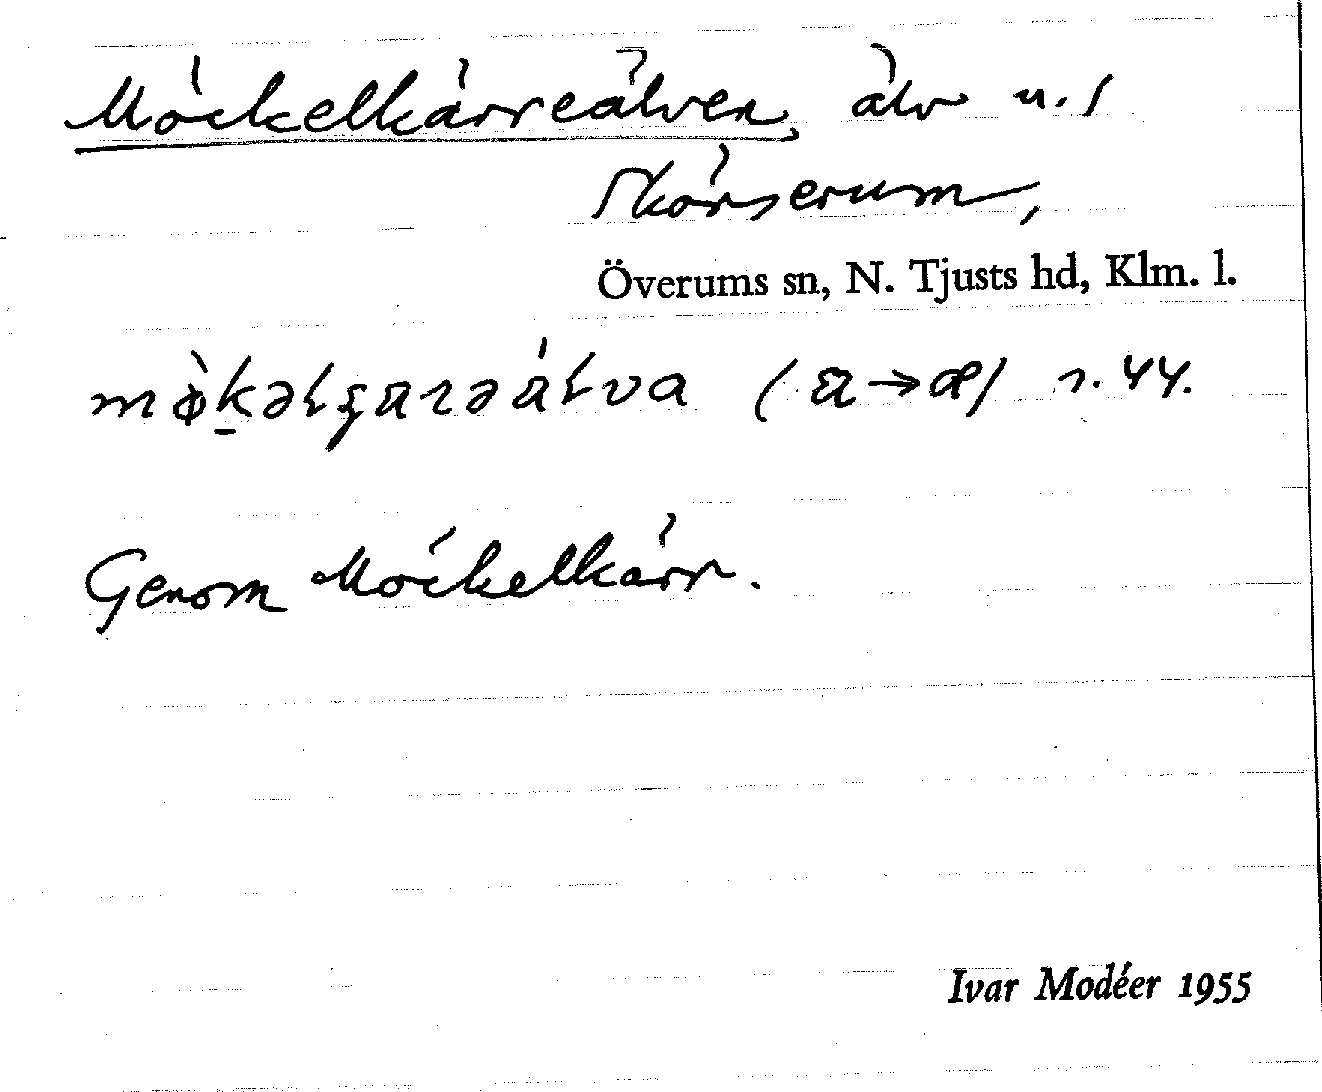 Möckelkärreälven, älv u. /
Skärserum,
Överums sn, N. Tjusts hd, Klm. l.
(a→æ) r. 44.
Genom Möckelkärr.
Ivar Modéer 1955